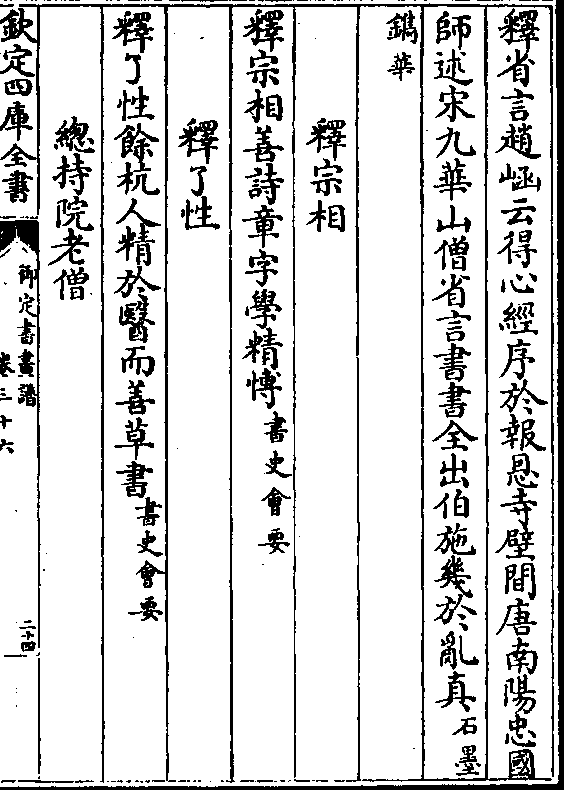 釋省言趙崡云得心經序於報恩寺壁間唐南陽忠國
師述宋九華山僧省言書書全出伯施幾於亂真石墨
鐫華
釋宗相
釋宗相善詩章字學精愽書史會要
釋了性
釋了性餘杭人精於醫而善草書書史會要
總持院老僧
欽定四庫全書
御定書畫譜
卷三十六
二十四